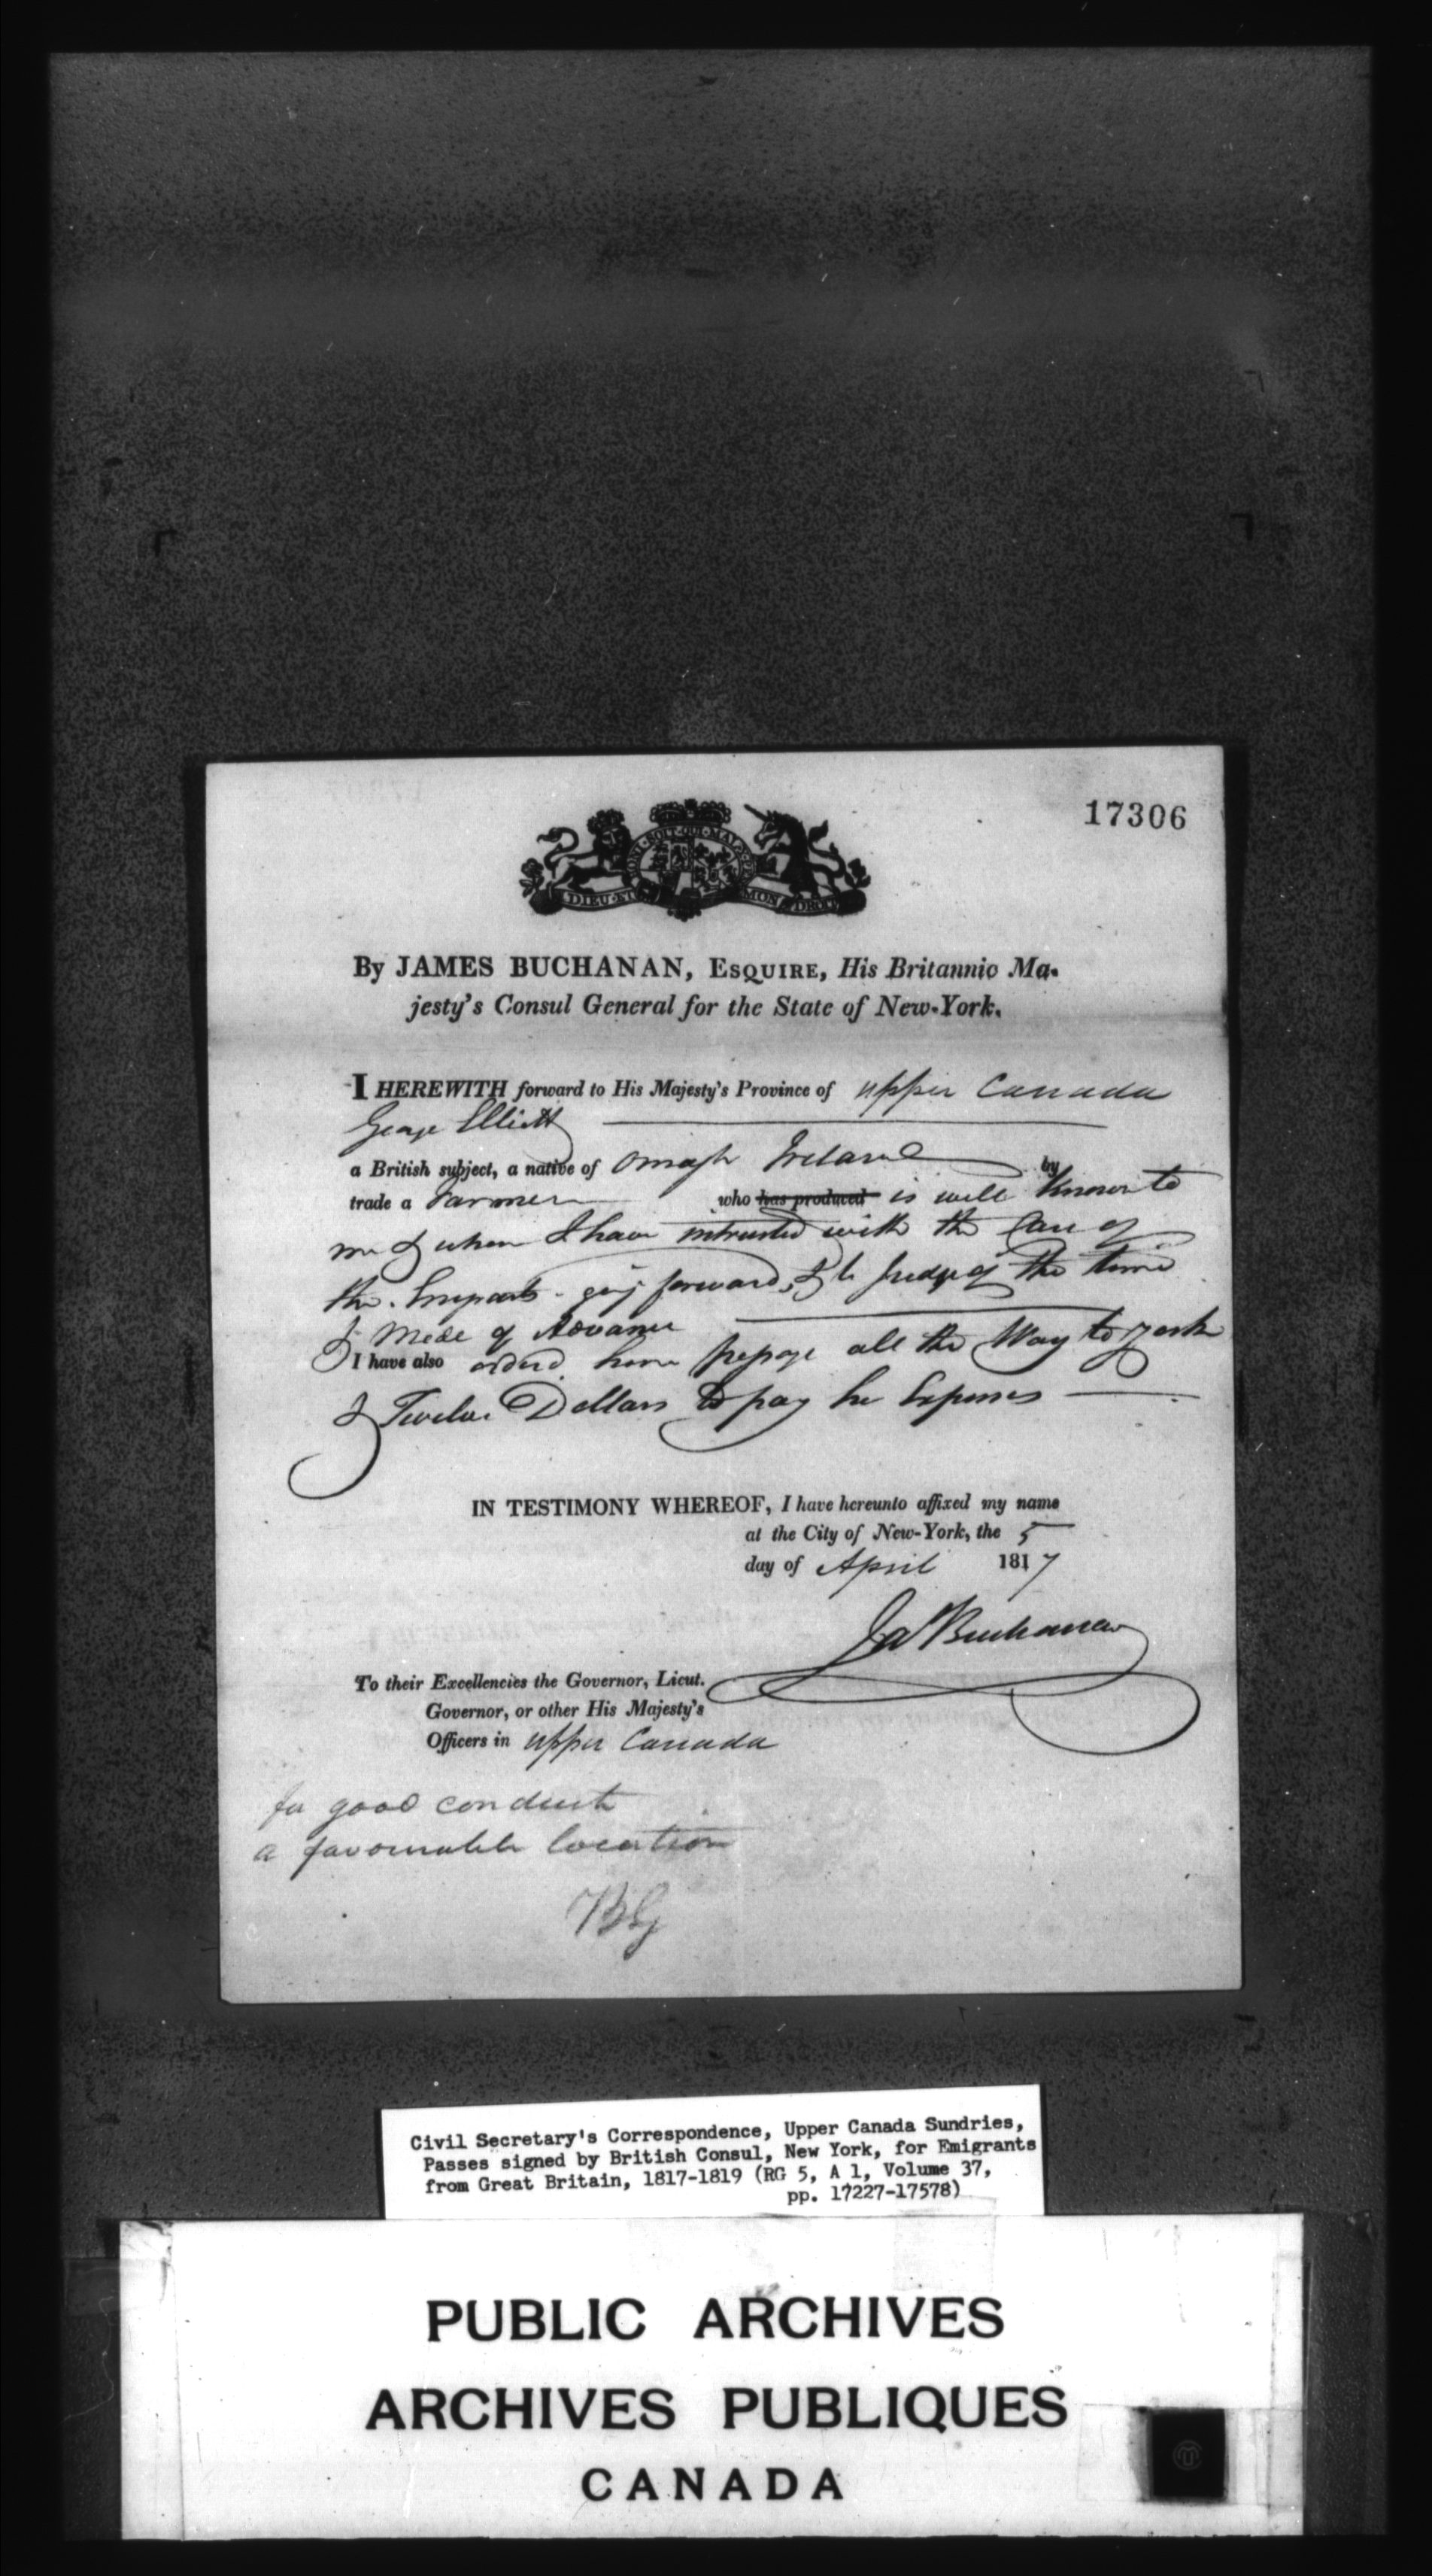 17306
HONI·SOIT·QUI·MAL·Y·
DIEU·ET MON DROIT
By JAMES BUCHANAN, ESQUIRE, His Britannic Ma-
jesty's Consul General for the State of New-York.
I HEREWITH forward to His Majesty's Province of upper Canada
George Elliott
a British subject, a native of Omagh Ireland by
trade a Farmer who has produced is well known to
me & whom I have intrusted with the Care of
the going forward, & to Judge of the time
& Mode of Advance
I have also orderd him all the Way to york
& Twelve Dollars to pay his Expenses
IN TESTIMONY WHEREOF, I have hereunto affixed my name
at the City of New-York, the 5
day of April 1817
Jas Buchanan
To their Excellencies the Governor, Lieut.
Governor, or other His Majesty's
Officers in upper Canada
for good conduct
a favourable location
BG
Civil Secretary's Correspondence, Upper Canada Sundries,
Passes signed by British Consul, New York, for Emigrants
from Great Britain, 1817-1819 (RG 5, A 1, Volume 37,
pp. 17227-17578)
PUBLIC ARCHIVES
ARCHIVES PUBLIQUES
CANADA